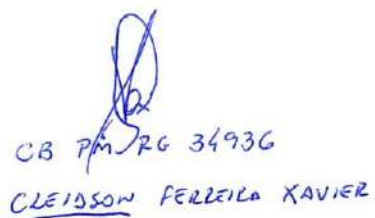 CB PM RG 34936
CLEIDSON FERREIRA XAVIER